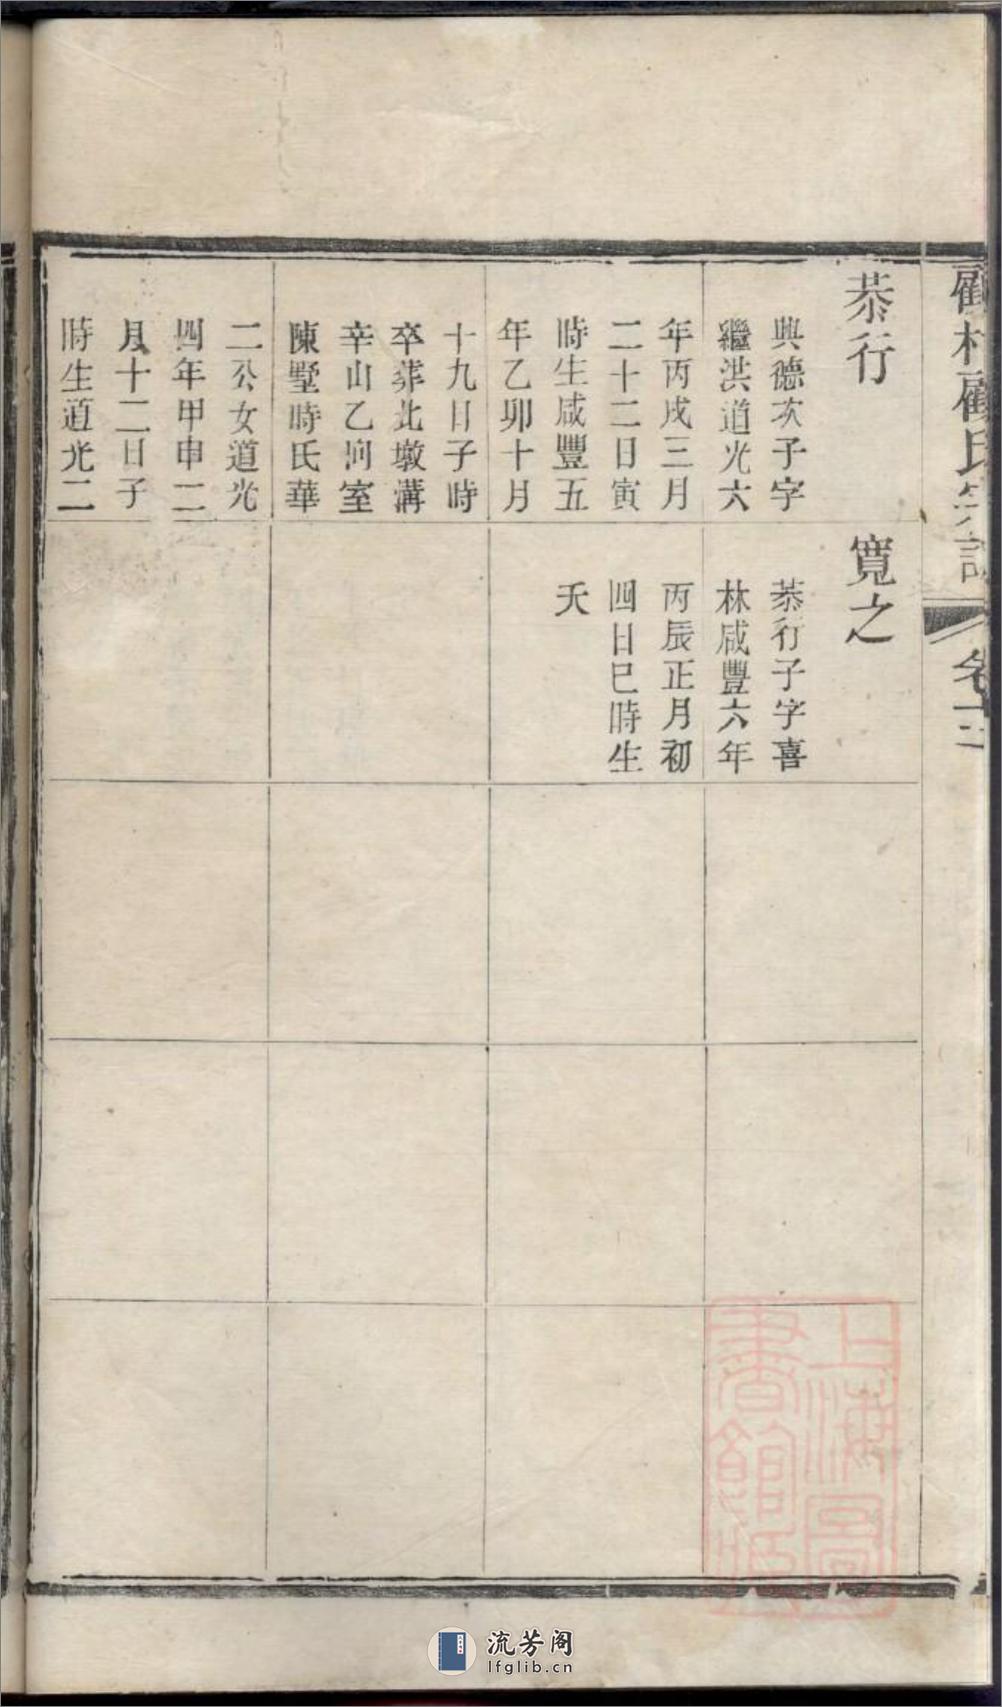 顧村顧氏宗譜
卷十二
恭行
典德次子字
繼洪道光六
年丙戌三月
二十二日寅
時生咸豐五
年乙卯十月
十九日子時
卒葬北墩溝
辛山乙向室
陳墅時氏華
二公女道光
四年甲申二
月十二日子
時生道光二
寬之
恭行子字喜
林咸豐六年
丙辰正月初
四日巳時生
夭
上海圖
書館藏
流芳阁
lfglib.cn